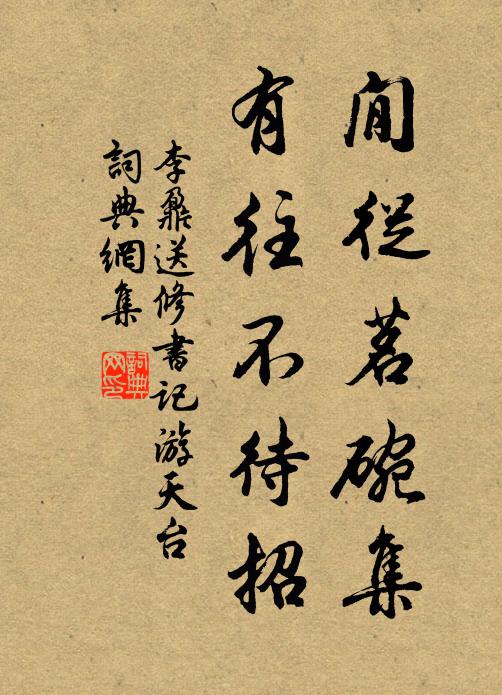 閒從茗碗集
有往不待招
李鼐送修書記游天台
詞典網集
詞典网印